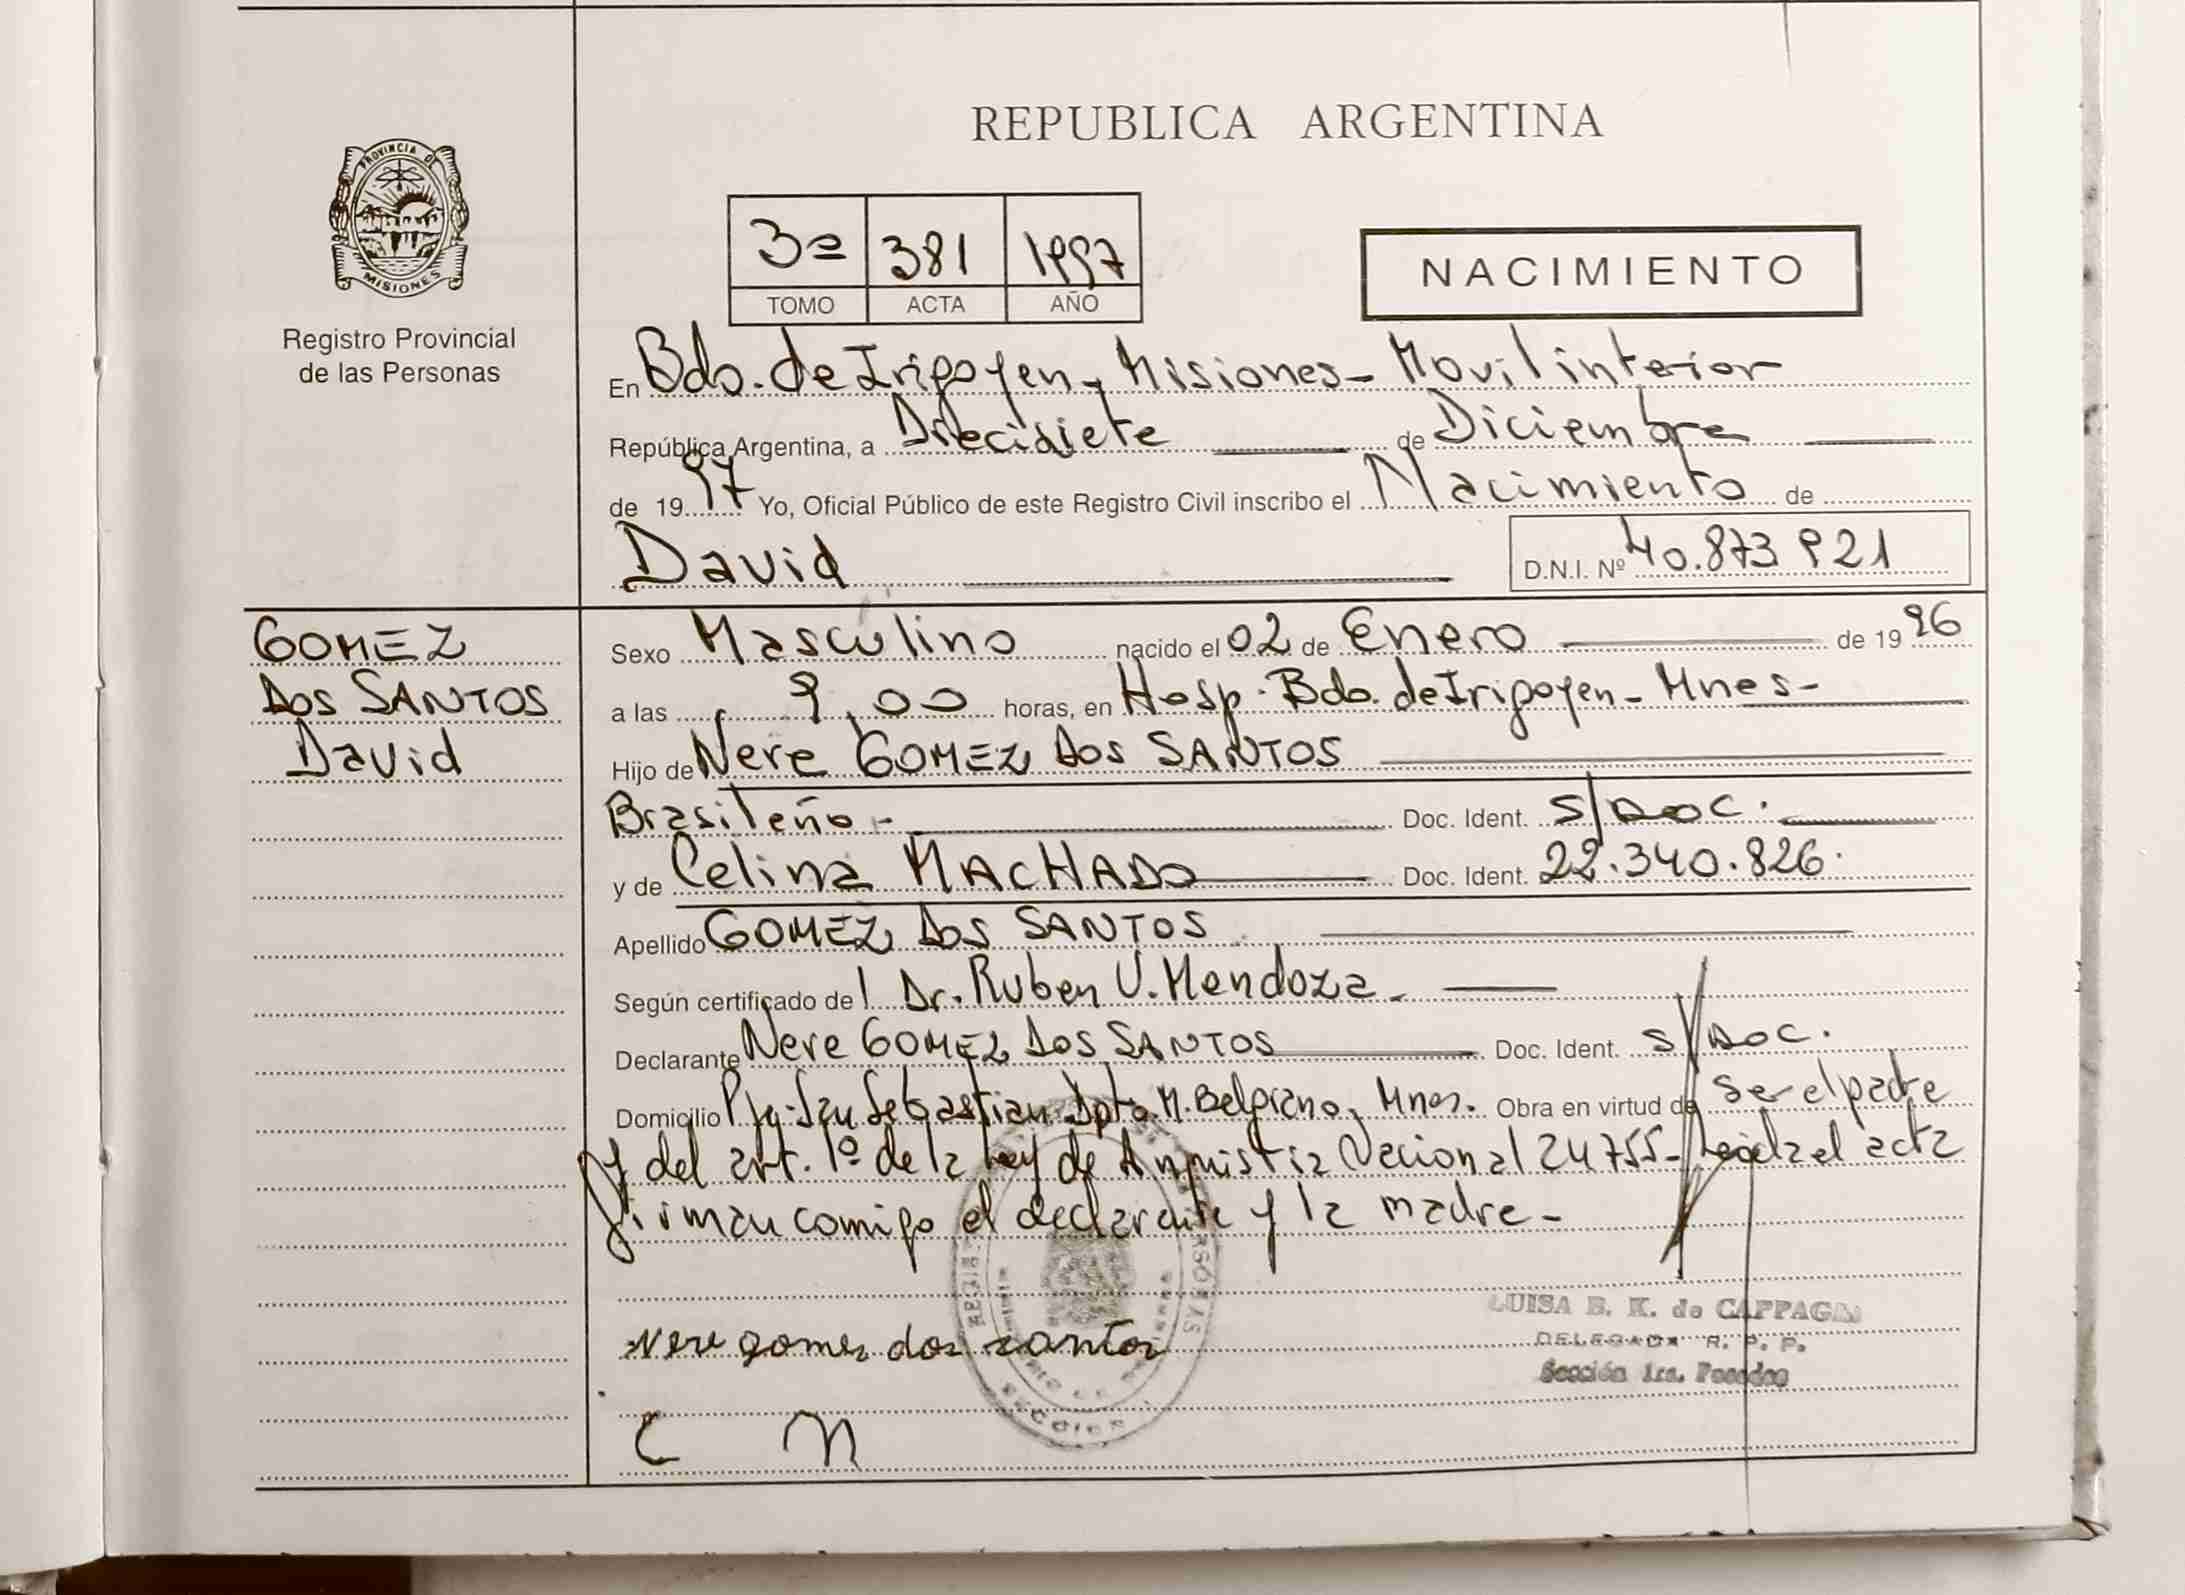 REPUBLICA ARGENTINA
PROVINCIA DE
MISIONES
Registro Provincial
de las Personas
3º 381 1997
TOMO ACTA AÑO
NACIMIENTO
En Bdo. de Irigoyen - Misiones - Movil interior
República Argentina, a Diecisiete de Diciembre
de 1997 Yo, Oficial Público de este Registro Civil inscribo el Nacimiento de
David D.N.I. Nº 40.873 921
GOMEZ
DOS SANTOS
David
Sexo Masculino nacido el 02 de Enero de 1996
a las 9,00 horas, en Hosp. Bdo. de Irigoyen - Mnes -
Hijo de Nere GOMEZ DOS SANTOS
Brasileño - Doc. Ident. S/DOC.
y de Celina MACHADO Doc. Ident. 22.340.826.
Apellido GOMEZ DOS SANTOS
Según certificado del Dr. Ruben U. Mendoza -
Declarante Nere GOMEZ DOS SANTOS Doc. Ident. S/DOC.
Domicilio Pje. San Sebastian Dpto. M. Belgrano, Mnes. Obra en virtud de ser el padre
y del art. 1º de la Ley de Amnistia Nacional 24755 - Leida el acta
firman comigo el declarante y la madre -
LUISA B. K. de
DELEGADA R. P. P.
Sección 1ra. Posadas
Nere gomes dos santos
C M